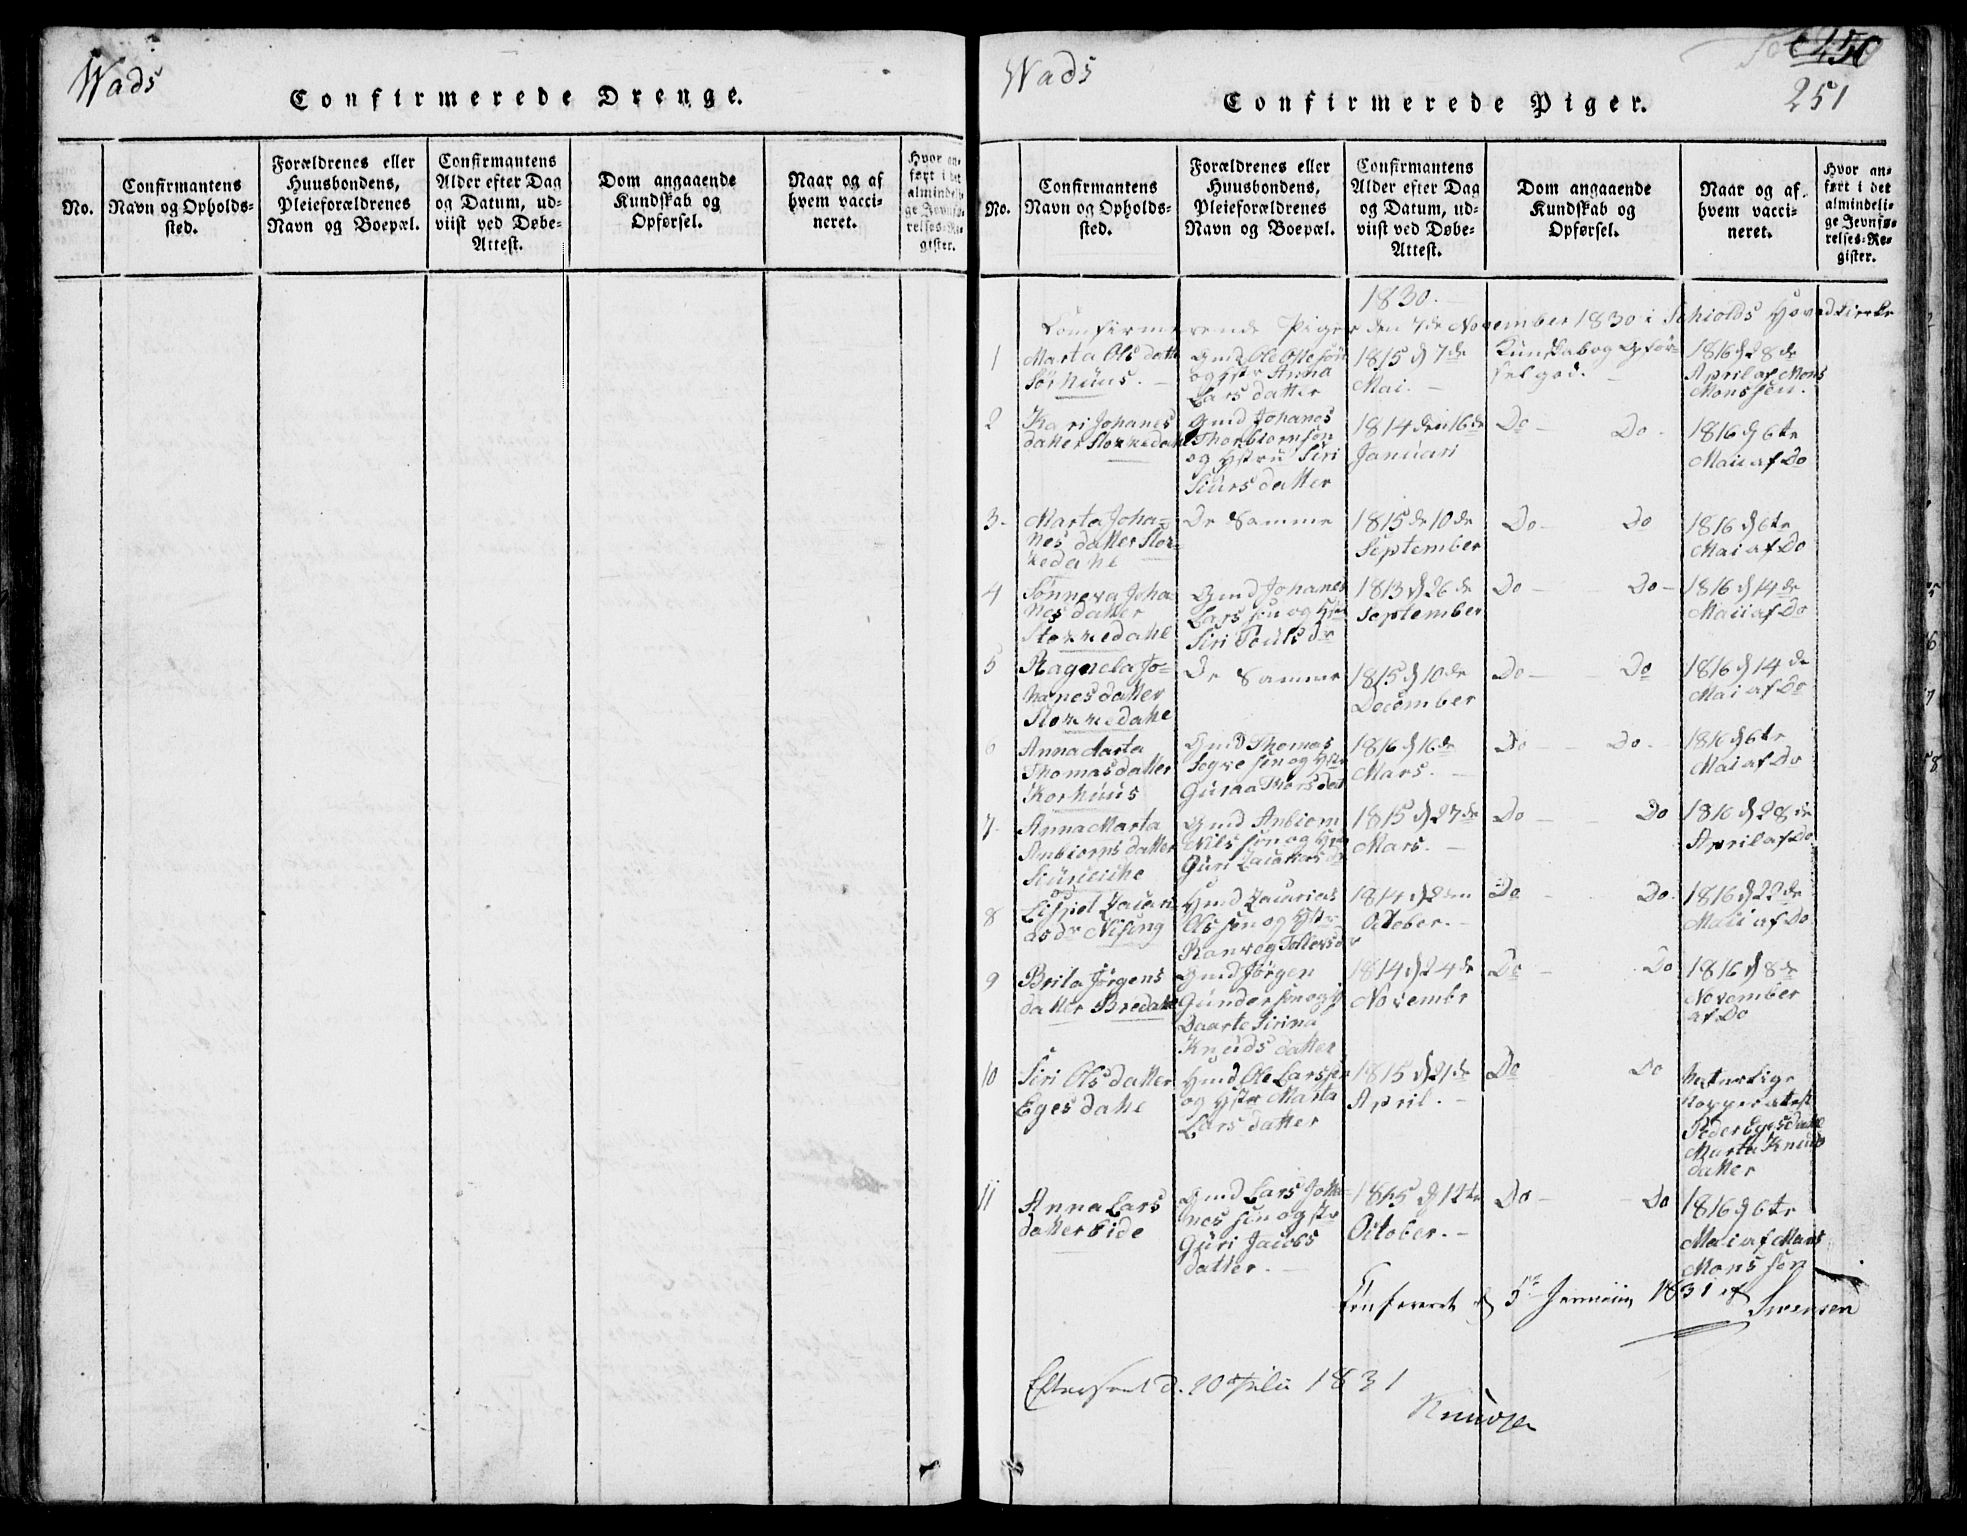 Wads
Confirmerede Drenge.
No.
Confirmantens
Navn og Opholds-
sted.
Forældrenes eller
Huusbondens,
Pleieforældrenes
Navn og Boepæl.
Confirmantens
Alder efter Dag
og Datum, ud-
viist ved Døbe-
Attest.
Dom angaaende
Kundskab og
Opførsel.
Naar og af
hvem vacci-
neret.
Hvor an-
ført i det
almindeli-
ge Jevnfø-
relses-Re-
gister.
Wads
Confirmerede Piger.
250
251
No.
Confirmantens
Navn og Opholds-
sted.
Forældrenes eller
Huusbondens,
Pleieforældrenes
Navn og Boepæl.
Confirmantens
Alder efter Dag
og Datum, ud-
viist ved Døbe-
Attest.
Dom angaaende
Kundskab og
Opførsel.
Naar og af
hvem vacci-
neret.
Hvor an-
ført i det
almindeli-
ge Jevnfø-
relses-Re-
gister.
1830.
Comfirmerende Piger den 7de November 1830 i Schiolds Hovedkierke
1
Marta Ols datt
Sørhuus.
Gmd Ole Olle søn
og Hstr Anna
Lars datter
1815 d 7de
Mai.
Kundskab og Opfør-
sel god.
1816 d 28de
April af Mons
Monssen.
2
Kari Johanes
datter Storkedahl
Gmd Johanes
Thorbiornsøn
og Hstru Siri
Siurs datter
1814 den 16de
Januari
Do - Do -
1816 d 6te
Maii af Do
3.
Marta Joha-
nes datter Stor-
kedahl
De Samme
1815 de 10de
September
Do - Do
1816 d 6te
Mai af Do
4
Sønneva Joha
nes datter
Storkedahl
Gmd Johanes
Lars søn og Hstr
Siri Pouls dr
1813 d 26de
September
Do - Do -
1816 d 14de
Maii af Do
5
Ragnela Jo-
hanes datter
Storkedahl
De Samme
1815 d 10de
December
Do - Do
1816 d 14de
Mai af Do
6
Anna Marta
Thomas datter
Korhuus
Gmd Thomas
søn og Hstr
Guraa Thors dat
1816 d 16de
Mars. -
Do - Do -
1816 d 6te
Mai af Do
7.
Anna Marta
Anbiorns datter
Gmd Anbiorn
Nils søn og Hstr
Guri
1815 d 27de
Mars. -
Do - Do
1816 d 28de
April af Do
8
as dr Nising
Hmd Zacarias
Ols søn og Hstr
Ranveg Tollevs dr
1814 d 2den
October. -
Do - Do.
1816 d 22de
Maii af Do
9
Brita Jørgens
datter Bredahl
Gmd Jørgen
Gunder søn og
Daarte Sirina
Knuds datter
1814 d 24de
Novembr
Do - Do
1816 d 8de
November
af Do
10
Siri Ols datter
Eges dahl
Hmd Ole Larssøn
og Hstr Marta
Lars datter
1815 d 21de
April. -
Do Do
naturlige
Kopper atest
Peder Egesdahl
Marta Knuds
datter
11
Anna Lars
datter Eide
Gmd Lars Joha-
nes søn og Hstr
Guri Jacobs
datter. -
1815 d 12te
October. -
Do - Do
1816 d 6te
Mai af Mons
Mons søn
Confereret d 5te Januarii 1831 af
Svensen
Efterseet d. 20 Julii 1831
Knudsen